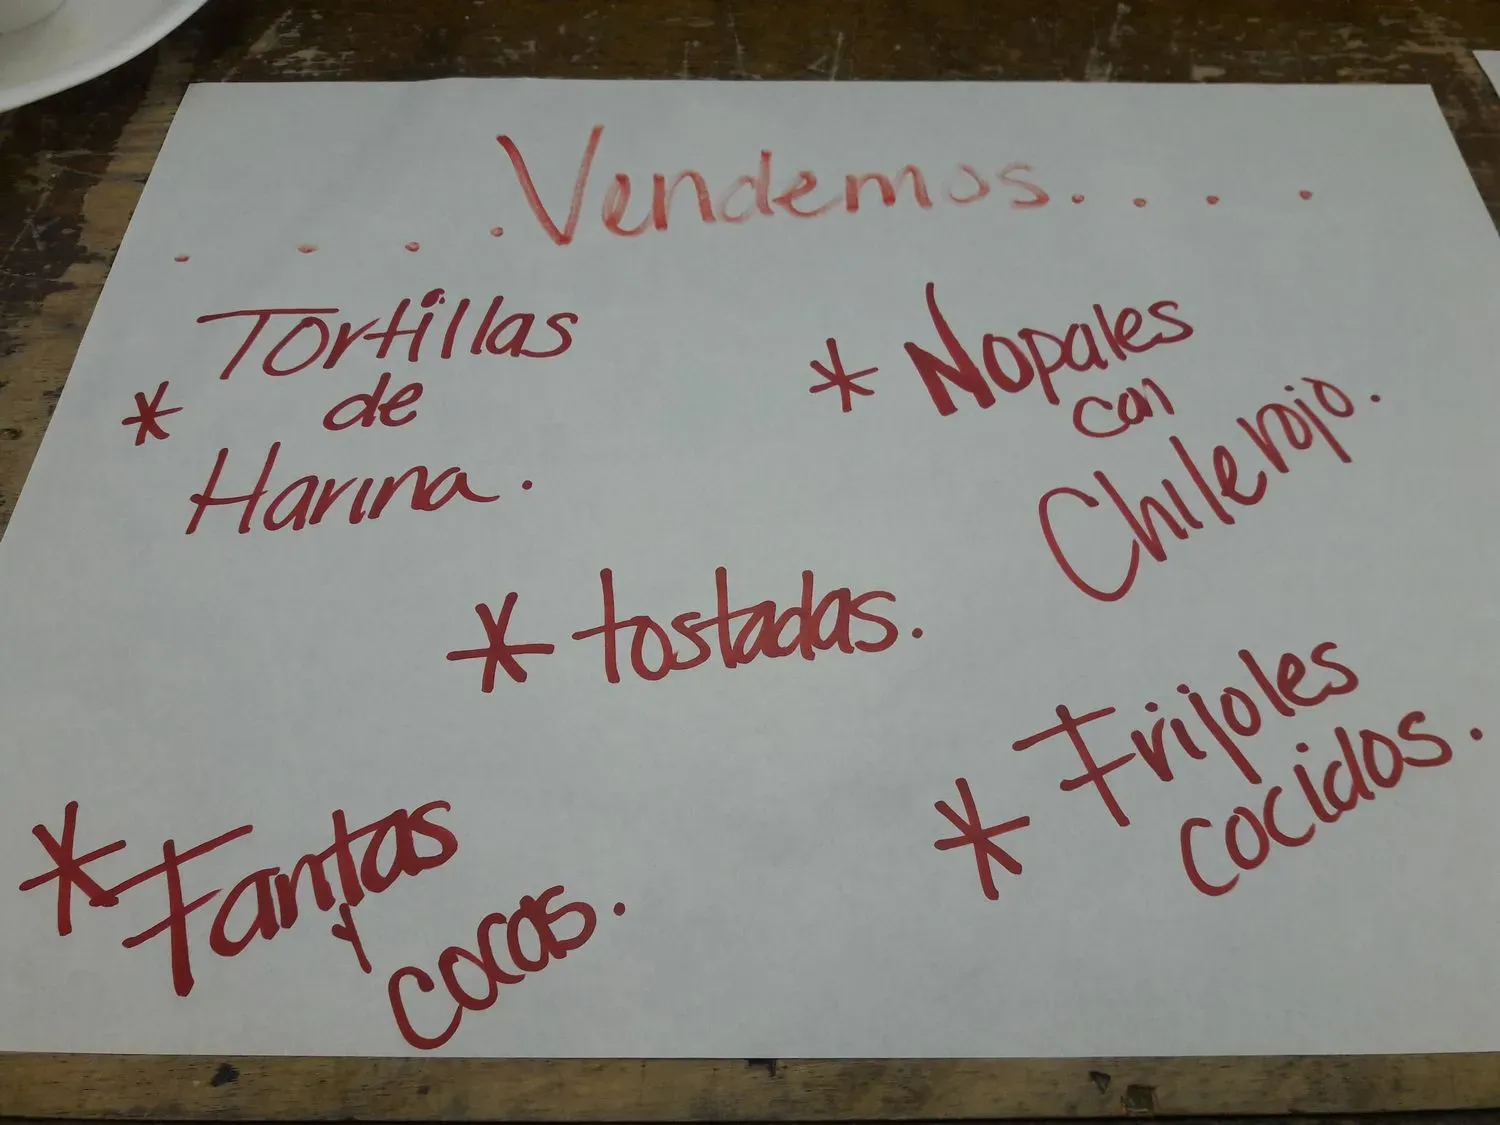 . . . . Vendemos. . . .
* Tortillas
de
Harina.
* Nopales
con
Chile rojo.
* tostadas.
* Frijoles
cocidos.
* Fantas
y
cocas.